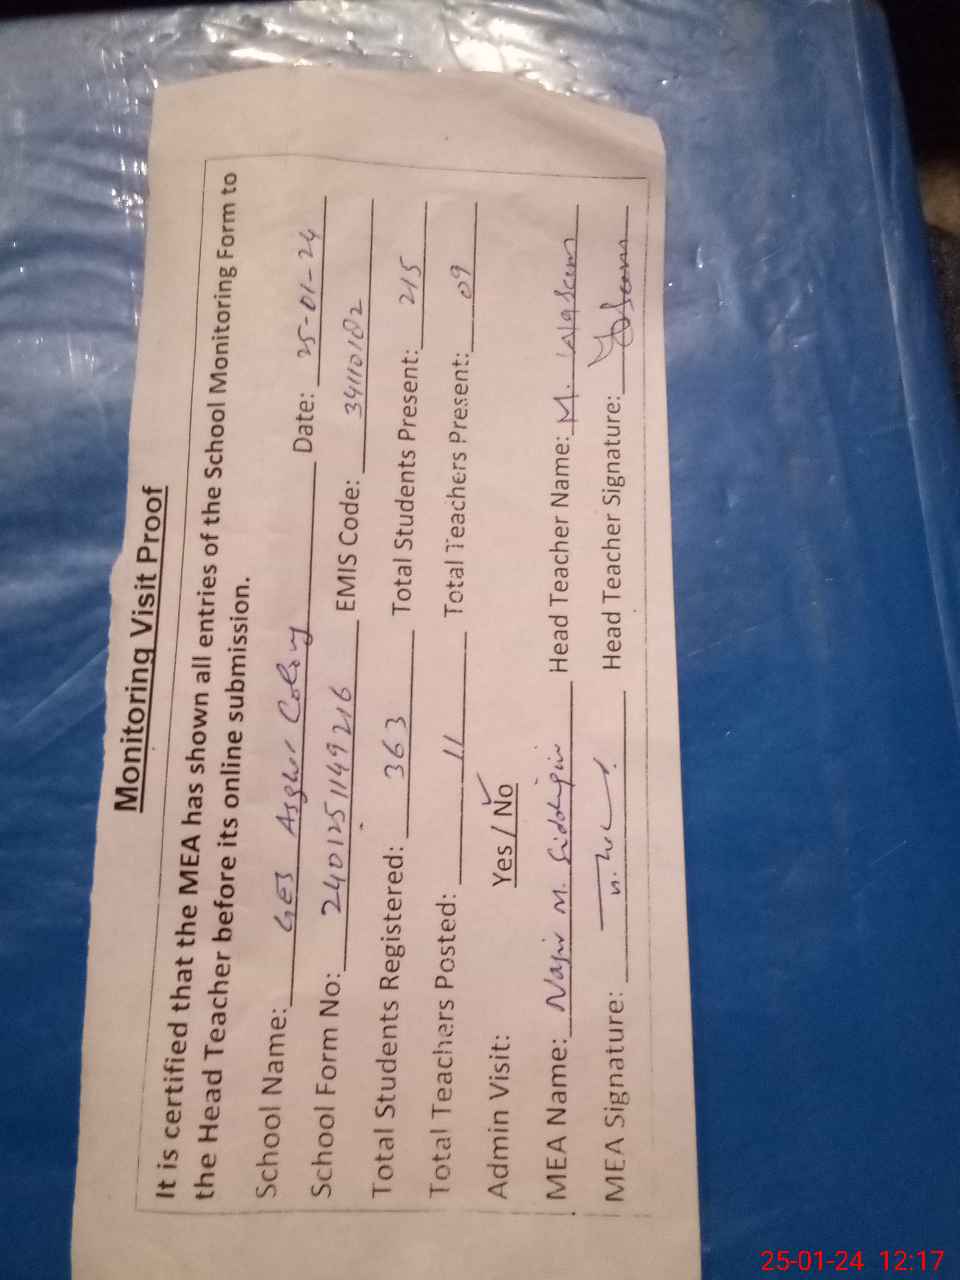 Monitoring Visit Proof
It is certified that the MEA has shown all entries of the School Monitoring Form to
the Head Teacher before its online submission.
School Name: GES Asghar Colony Date: 25-01-24
School Form No: 2401251149216 EMIS Code: 34110182
Total Students Registered: 363 Total Students Present: 215
Total Teachers Posted: 11 Total Teachers Present: 09
Admin Visit: Yes / No ✓
MEA Name: Nasir M. Siddiqui Head Teacher Name: M.
MEA Signature: Head Teacher Signature:
25-01-24 12:17